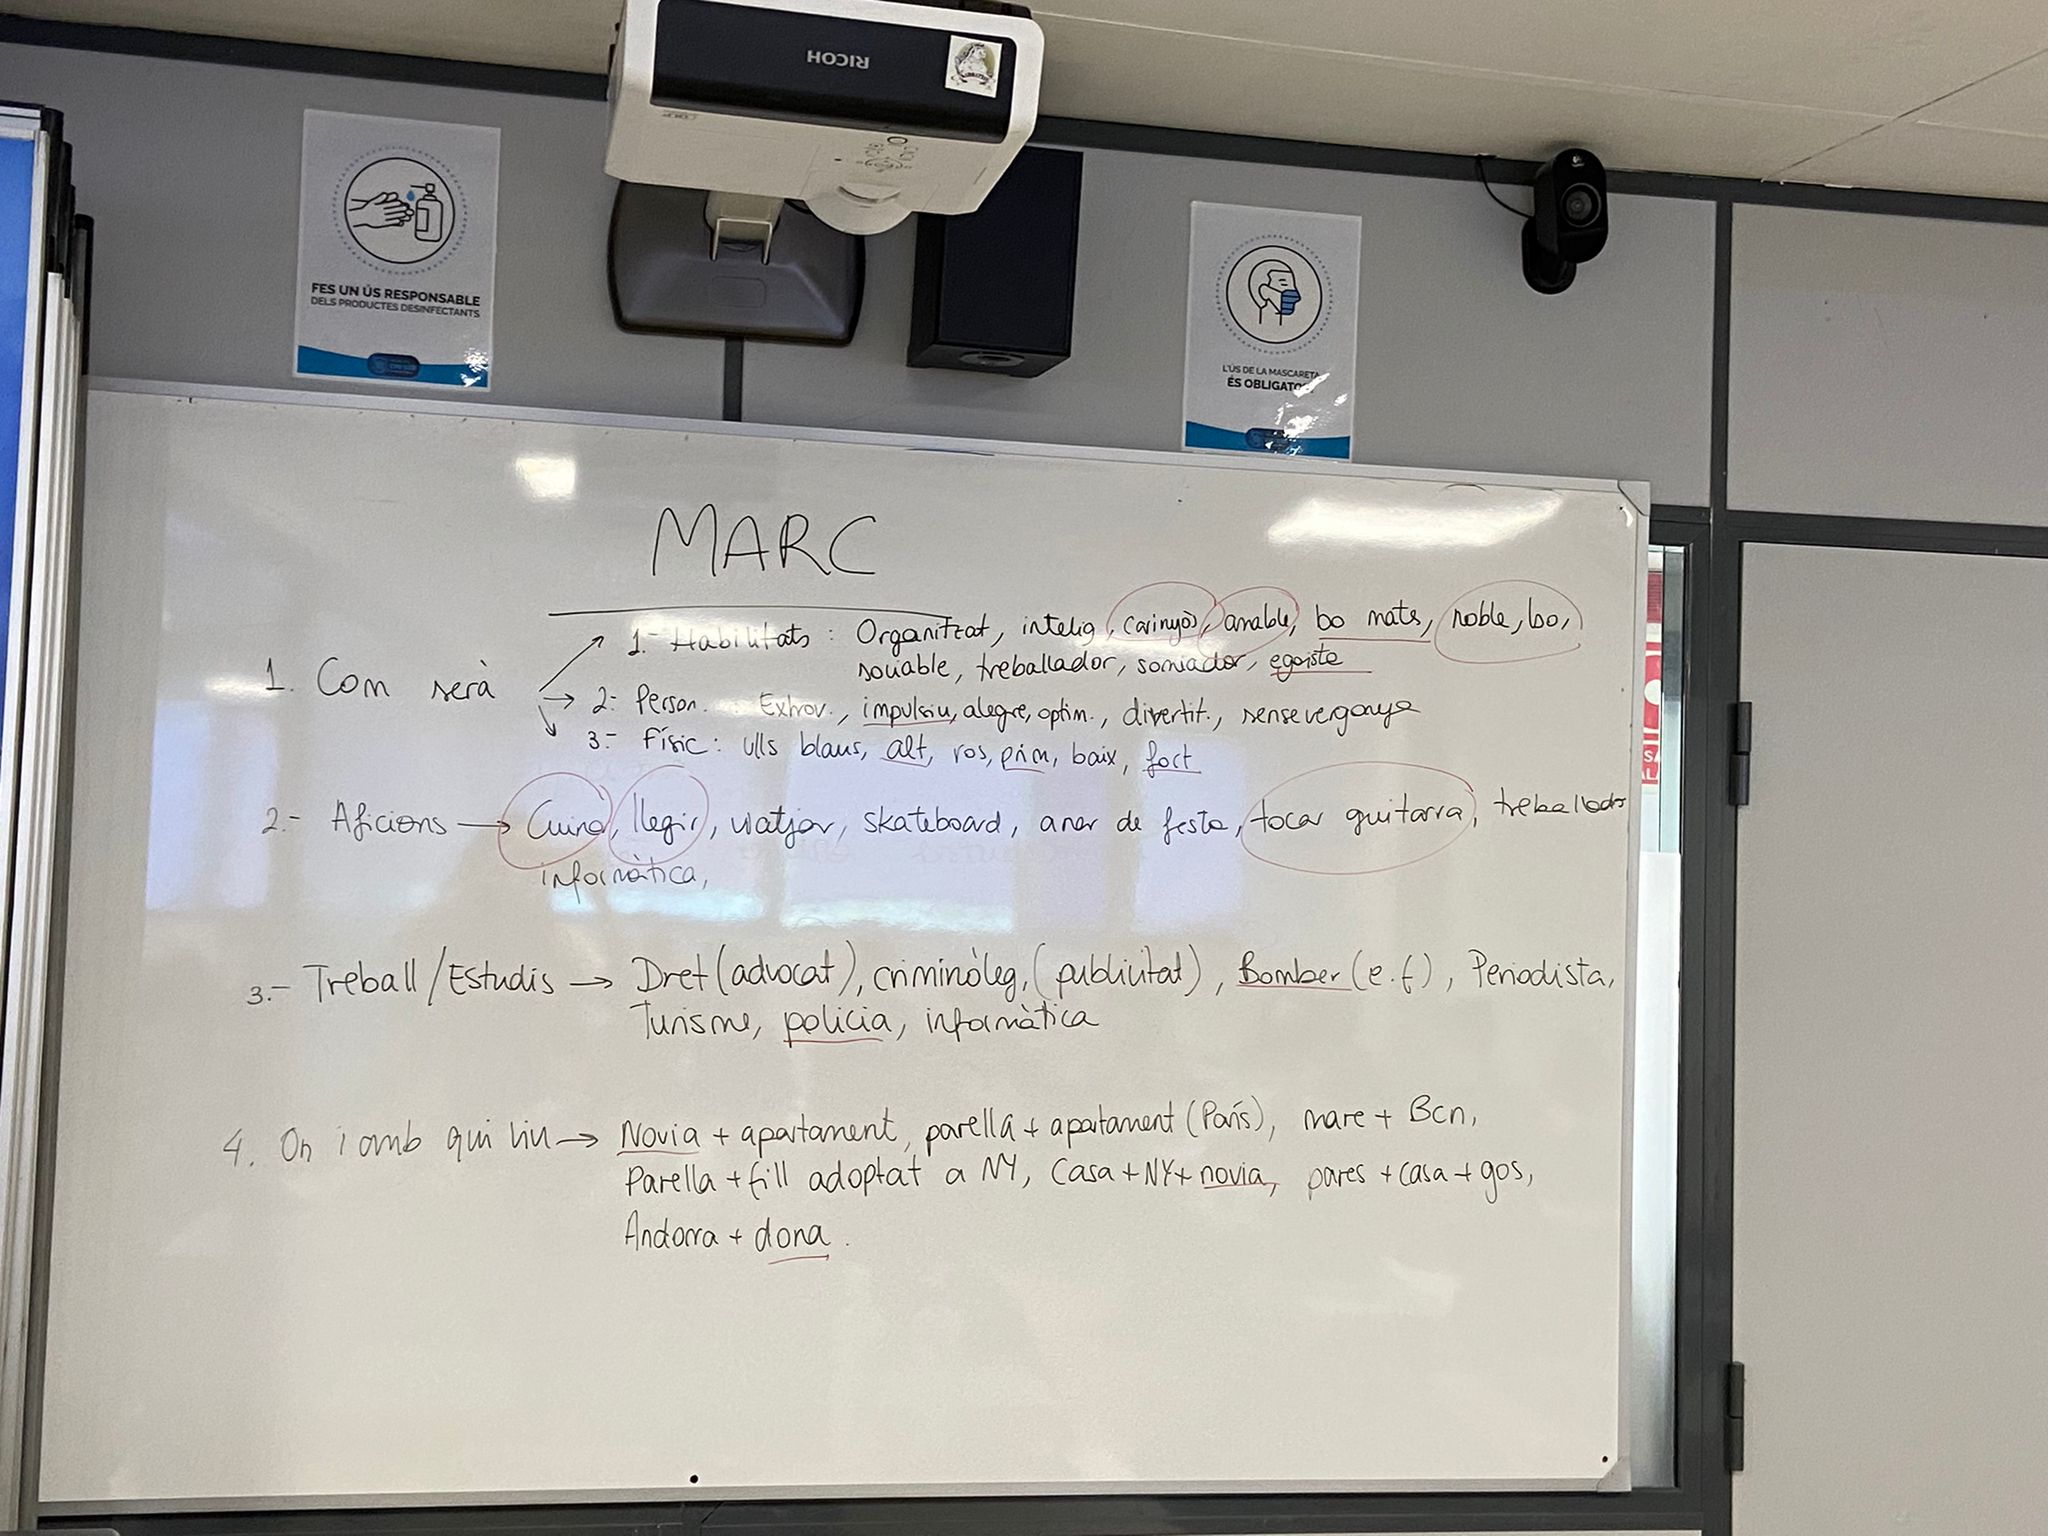 RICOH
FES UN ÚS RESPONSABLE
DELS PRODUCTES DESINFECTANTS
L'ÚS DE LA MASCARETA
ÉS OBLIGATO
MARC
1. Com serà
1.- Habilitats : Organitzat, intelig, carinyós, amable, bo mats, noble, bo,
sociable, treballador, somiador, egoista
2.- Person. : Extrov., impulsiu, alegre, optim., divertit., sensevergonya
3.- Físic : ulls blaus, alt, ros, prim, baix, fort
2.- Aficions → Cuina, llegir, viatjar, skateboard, anar de festa, tocar guitarra, treballador
informàtica,
3.- Treball/Estudis → Dret (advocat), criminòleg, (publicitat), Bomber (e.f), Periodista,
Turisme, policia, informàtica
4. On i amb qui viu → Novia + apartament, parella + apartament (París), mare + Bcn,
Parella + fill adoptat a NY, Casa + NY + novia, pares + casa + gos,
Andorra + dona.